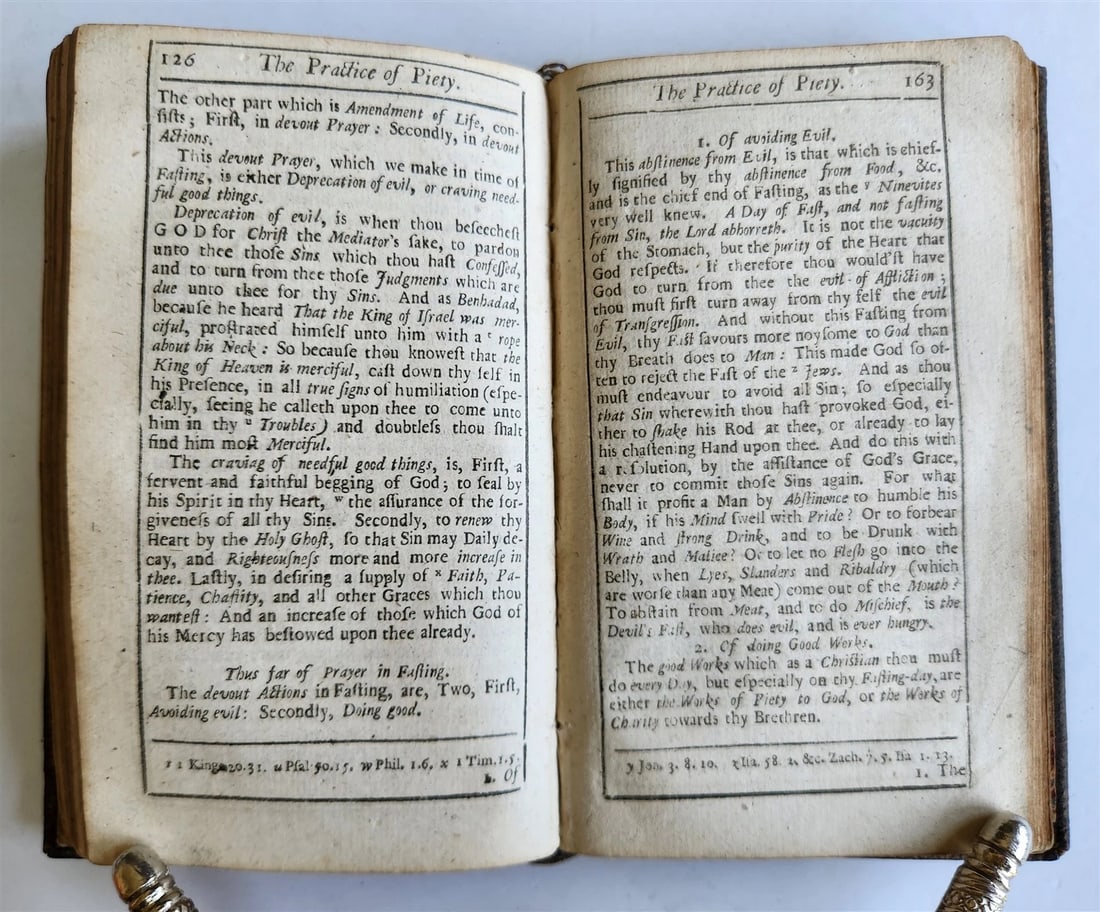 126 The Practice of Piety.
The other part which is Amendment of Life, con-
ſiſts; Firſt, in devout Prayer: Secondly, in devout
Actions.
This devout Prayer, which we make in time of
Faſting, is either Deprecation of evil, or craving need-
ful good things.
Deprecation of evil, is when thou beſeecheſt
GOD for Chriſt the Mediator's ſake, to pardon
unto thee thoſe Sins which thou haſt Confeſſed,
and to turn from thee thoſe Judgments which are
due unto thee for thy Sins. And as Benhadad,
becauſe he heard That the King of Iſrael was mer-
ciful, proſtrated himſelf unto him with a ᵗ rope
about his Neck: So becauſe thou knoweſt that the
King of Heaven is merciful, caſt down thy ſelf in
his Preſence, in all true ſigns of humiliation (eſpe-
cially, ſeeing he calleth upon thee to come unto
him in thy ᵘ Troubles) and doubtleſs thou ſhalt
find him moſt Merciful.
The craving of needful good things, is, Firſt, a
fervent and faithful begging of God; to ſeal by
his Spirit in thy Heart, ʷ the aſſurance of the for-
giveneſs of all thy Sins. Secondly, to renew thy
Heart by the Holy Ghoſt, ſo that Sin may Daily de-
cay, and Righteouſneſs more and more increaſe in
thee. Laſtly, in deſiring a ſupply of ˣ Faith, Pa-
tience, Chaſtity, and all other Graces which thou
wanteſt: And an increaſe of thoſe which God of
his Mercy has beſtowed upon thee already.
Thus far of Prayer in Faſting.
The devout Actions in Faſting, are, Two, Firſt,
Avoiding evil: Secondly, Doing good.
t 1 Kings 20.31. u Pſal 50.15. w Phil. 1.6. x 1 Tim. 1.5.
1. Of
The Practice of Piety. 163
1. Of avoiding Evil.
This abſtinence from Evil, is that which is chief-
ly ſignified by thy abſtinence from Food, &c.
and is the chief end of Faſting, as the ʸ Ninevites
very well knew. A Day of Faſt, and not faſting
from Sin, the Lord abhorreth. It is not the vacuity
of the Stomach, but the purity of the Heart that
God reſpects. If therefore thou would'ſt have
God to turn from thee the evil of Affliction;
thou muſt firſt turn away from thy ſelf the evil
of Tranſgreſſion. And without this Faſting from
Evil, thy Faſt ſavours more noyſome to God than
thy Breath does to Man: This made God ſo of-
ten to reject the Faſt of the ᶻ Jews. And as thou
muſt endeavour to avoid all Sin; ſo eſpecially
that Sin wherewith thou haſt provoked God, ei-
ther to ſhake his Rod at thee, or already to lay
his chaſtening Hand upon thee. And do this with
a r.ſolution, by the aſſiſtance of God's Grace,
never to commit thoſe Sins again. For what
ſhall it profit a Man by Abſtinence to humble his
Body, if his Mind ſwell with Pride? Or to forbear
Wine and ſtrong Drink, and to be Drunk with
Wrath and Malice? Or to let no Fleſh go into the
Belly, when Lyes, Slanders and Ribaldry (which
are worſe than any Meat) come out of the Mouth?
To abſtain from Meat, and to do Miſchief, is the
Devil's Faſt, who does evil, and is ever hungry.
2. Of doing Good Works.
The good Works which as a Chriſtian thou muſt
do every Day, but eſpecially on thy Faſting-day, are
either the Works of Piety to God, or the Works of
Charity towards thy Brethren.
y Jon. 3. 8. 10. z Iſa. 58. 2. &c. Zach. 7. 5. Iſa 1. 13.
1. The